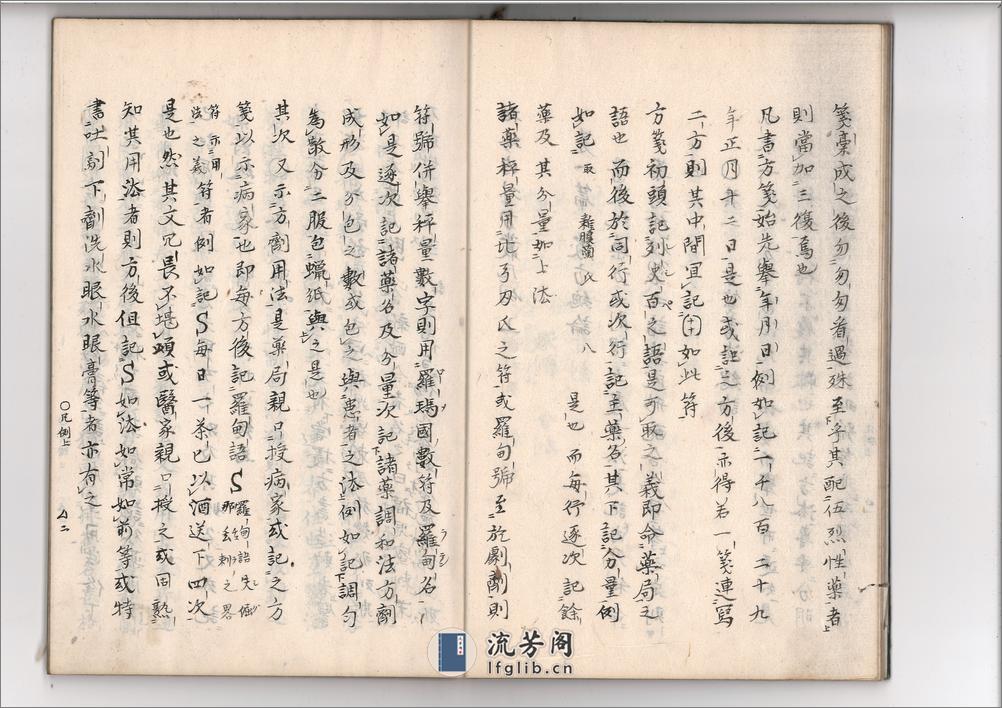 箋稾成之後勿匆匆看過殊至于其配伍烈性藥者
則當加三復焉也
凡書方箋始先擧年月日例如記一千八百二十九
年正月十二日是也或記之方後亦得若一箋連寫
二方則其中間宜記㊉如此符
方箋初頭記列失百之語是可取之義即命藥局之
語也而後於同行或次行記主藥名其下記分量例
如記取 雞腹菌 氏 八 是也而每行逐次記餘
藥及其分量如上法
諸藥秤量用此之符或羅甸號至於劇劑則
符號併擧秤量數字則用羅瑪國數符及羅甸名
如是逐次記諸藥名及分量次記諸藥調和法方劑
成形及分包之數或包之與患者之法例如記調勻
為散分二服包蠟紙與之是也
其次又示方劑用法是藥局親口授病家或記之方
箋以示病家也即每方後記羅甸語S 羅甸語 之畧
符示用法之義 符者例如記S每日一茶匕以酒送下四次
是也然其文冗長不堪煩或醫家親口授之或固熟
知其用法者則方後但記S如法如常如前等或特
書吐劑下劑洗水眼水眼膏等者亦有之
〇凡例上
二
流芳阁
lfglib.cn